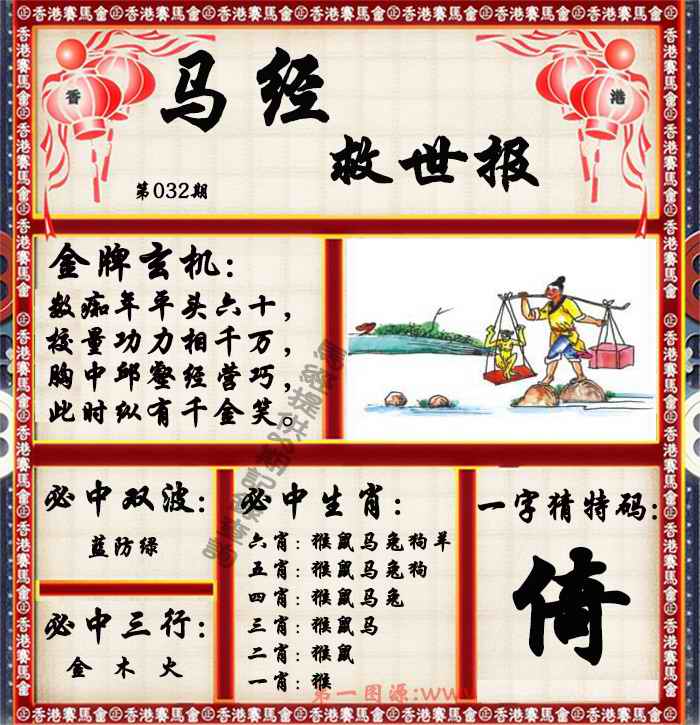 香港賽馬會
香 港
马经
救世报
第032期
金牌玄机:
数痴年平头六十,
校量功力相千万,
胸中邱壑经营巧,
此时纵有千金笑。
必中双波:
蓝防绿
必中三行:
金 木 火
必中生肖:
六肖:猴鼠马兔狗羊
五肖:猴鼠马兔狗
四肖:猴鼠马兔
三肖:猴鼠马
二肖:猴鼠
一肖:猴
一字猜特码:
倚
第一图源:www